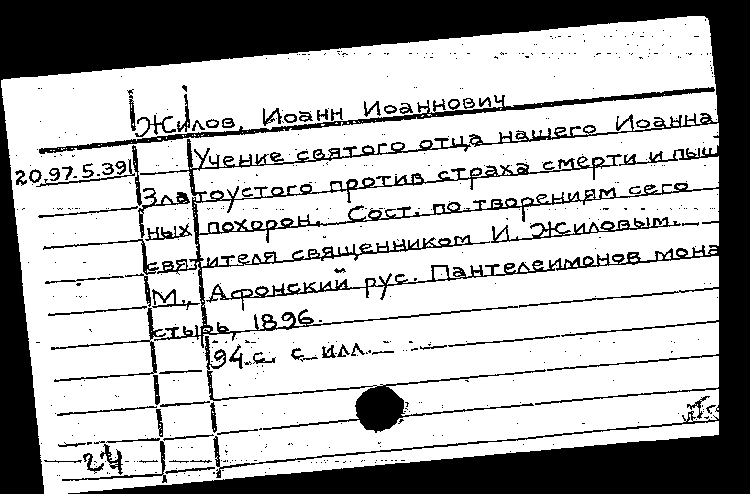 Жилов, Иоанн Иоаннович
20.97.5.391 Учение святого отца нашего Иоанна
Златоустого против страха смерти и пыш
ных похорон. Сост. по творениям сего
святителя священником И. Жиловым.
М., Афонский рус. Пантелеимонов мона
стырь, 1896.
94 с. с илл.
24